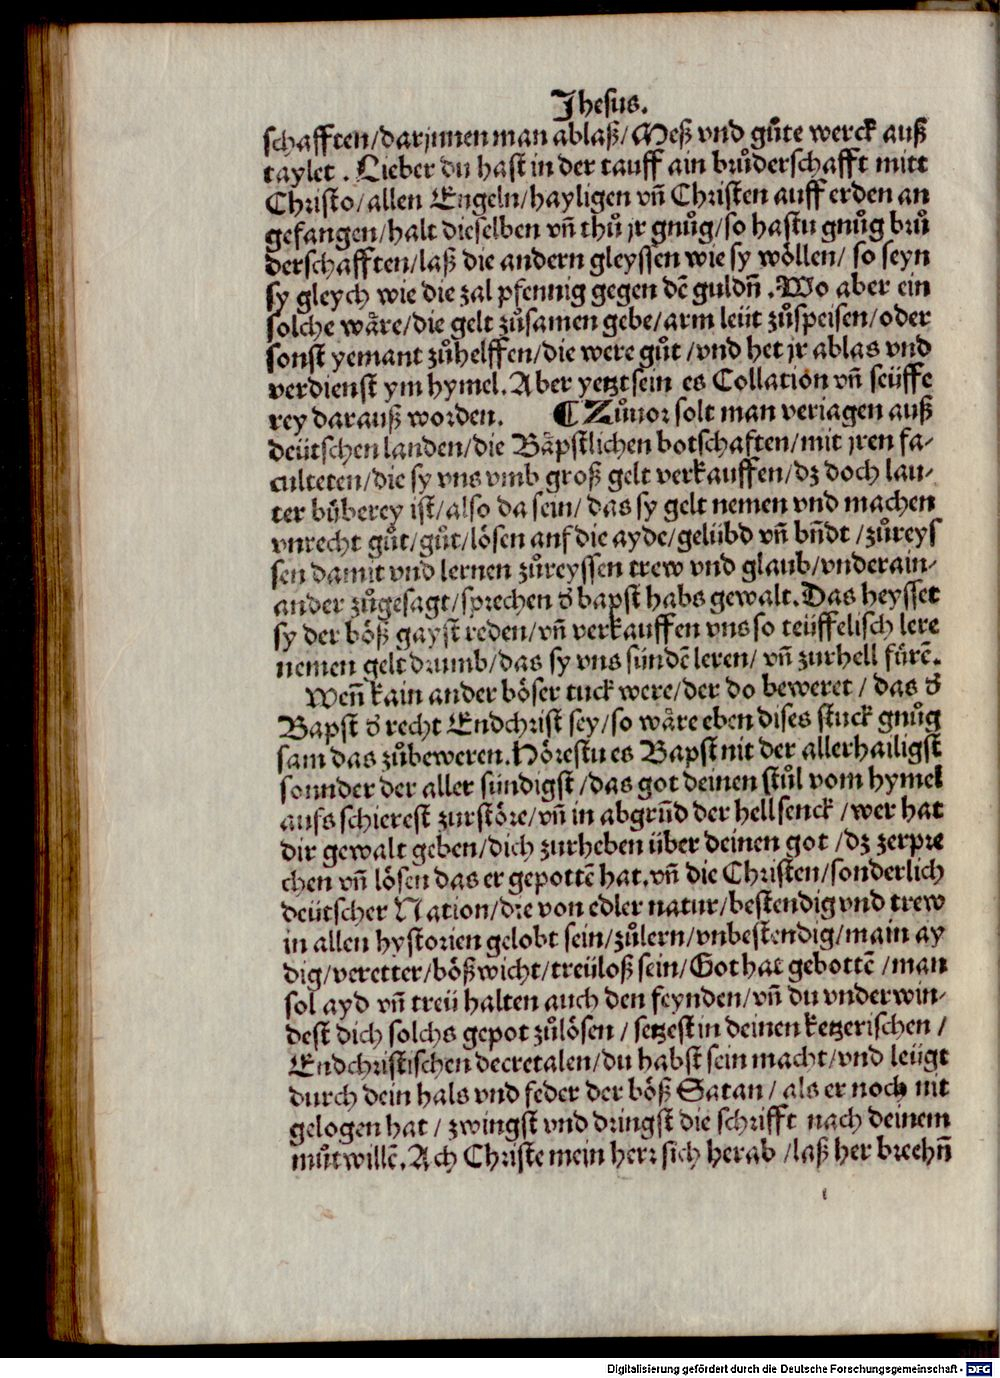 Jhesus.
schafften/darjnnen man ablaß/Meß vnd gůte werck auß
taylet. Lieber du hast in der tauff ain brůderschafft mitt
Christo/allen Engeln/hayligen vñ Christen auff erden an
gefangen/halt dieselben vñ thů jr gnůg/so hastu gnůg brů
derschafften/laß die andern gleyssen wie sy wöllen/ so seyn
sy gleych wie die zal pfennig gegen dẽ guldñ. Wo aber ein
solche wäre/die gelt zůsamen gebe/arm leüt zůspeisen/oder
sonst yemant zůhelffen/die were gůt/vnd het jr ablas vnd
verdienst ym hymel. Aber yetzt sein es Collation vñ seüffe
rey darauß worden. ¶ Zůuor solt man veriagen auß
deütschen landen/die Bäpstlichen botschaften/mit jren fa-
culteten/die sy vns vmb groß gelt verkauffen/dz doch lau-
ter bůberey ist/also da sein/ das sy gelt nemen vnd machen
vnrecht gůt/gůt/lösen auf die ayde/gelübd vñ bñdt/zůreys
sen damit vnd lernen zůreyssen trew vnd glaub/vnderain-
ander zůgesagt/sprechen d' bapst habs gewalt. Das heysset
sy der böß gayst reden/vñ verkauffen vns so teüffelisch lere
nemen gelt drumb/das sy vns sündẽ leren/ vñ zur hell fürẽ.
Weñ kain ander böser tuck were/der do beweret/ das d'
Bapst d' recht Endchrist sey/so wäre eben dises stuck gnůg
sam das zůbeweren. Hörestu es Bapst nit der allerhailigst
sonnder der aller sündigst/das got deinen stůl vom hymel
aufs schierest zurstöre/vñ in abgrũd der hell senck/wer hat
dir gewalt geben/dich zurheben über deinen got/dz zerpre
chen vñ lösen das er gepottẽ hat. vñ die Christen/sonderlich
deütscher Nation/die von edler natur/bestendig vnd trew
in allen hystorien gelobt sein/zůlern/vnbestendig/main ay
dig/veretter/bößwicht/treüloß sein/Got hat gebottẽ/man
sol ayd vñ treü halten auch den feynden/vñ du vnderwin-
dest dich solchs gepot zůlösen/ setzest in deinen ketzerischen/
Endchristischen decretalen/du habst sein macht/vnd leügt
durch dein hals vnd feder der böß Satan/ als er noch nit
gelogen hat/ zwingst vnd dringst die schrifft nach deinem
můtwillẽ. Ach Christe mein herr sich herab/laß her breehñ
Digitalisierung gefördert durch die Deutsche Forschungsgemeinschaft - DFG